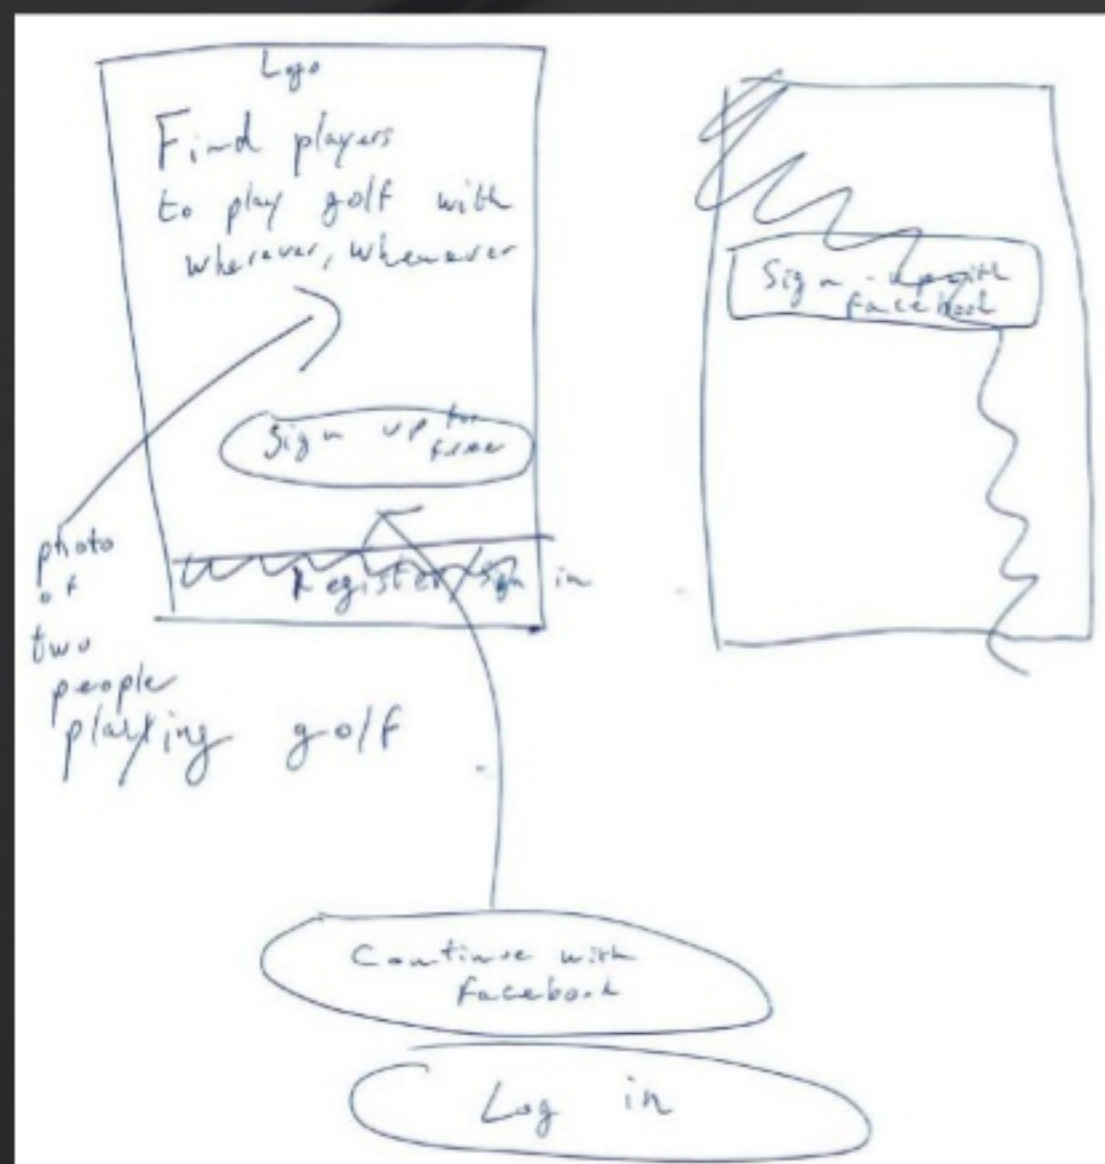 Logo
Find players
to play golf with
wherever, whenever
Sign up for
free
Register/Sign in
photo
of
two
people
playing golf
Sign-up with
facebook
Continue with
facebook
Log in